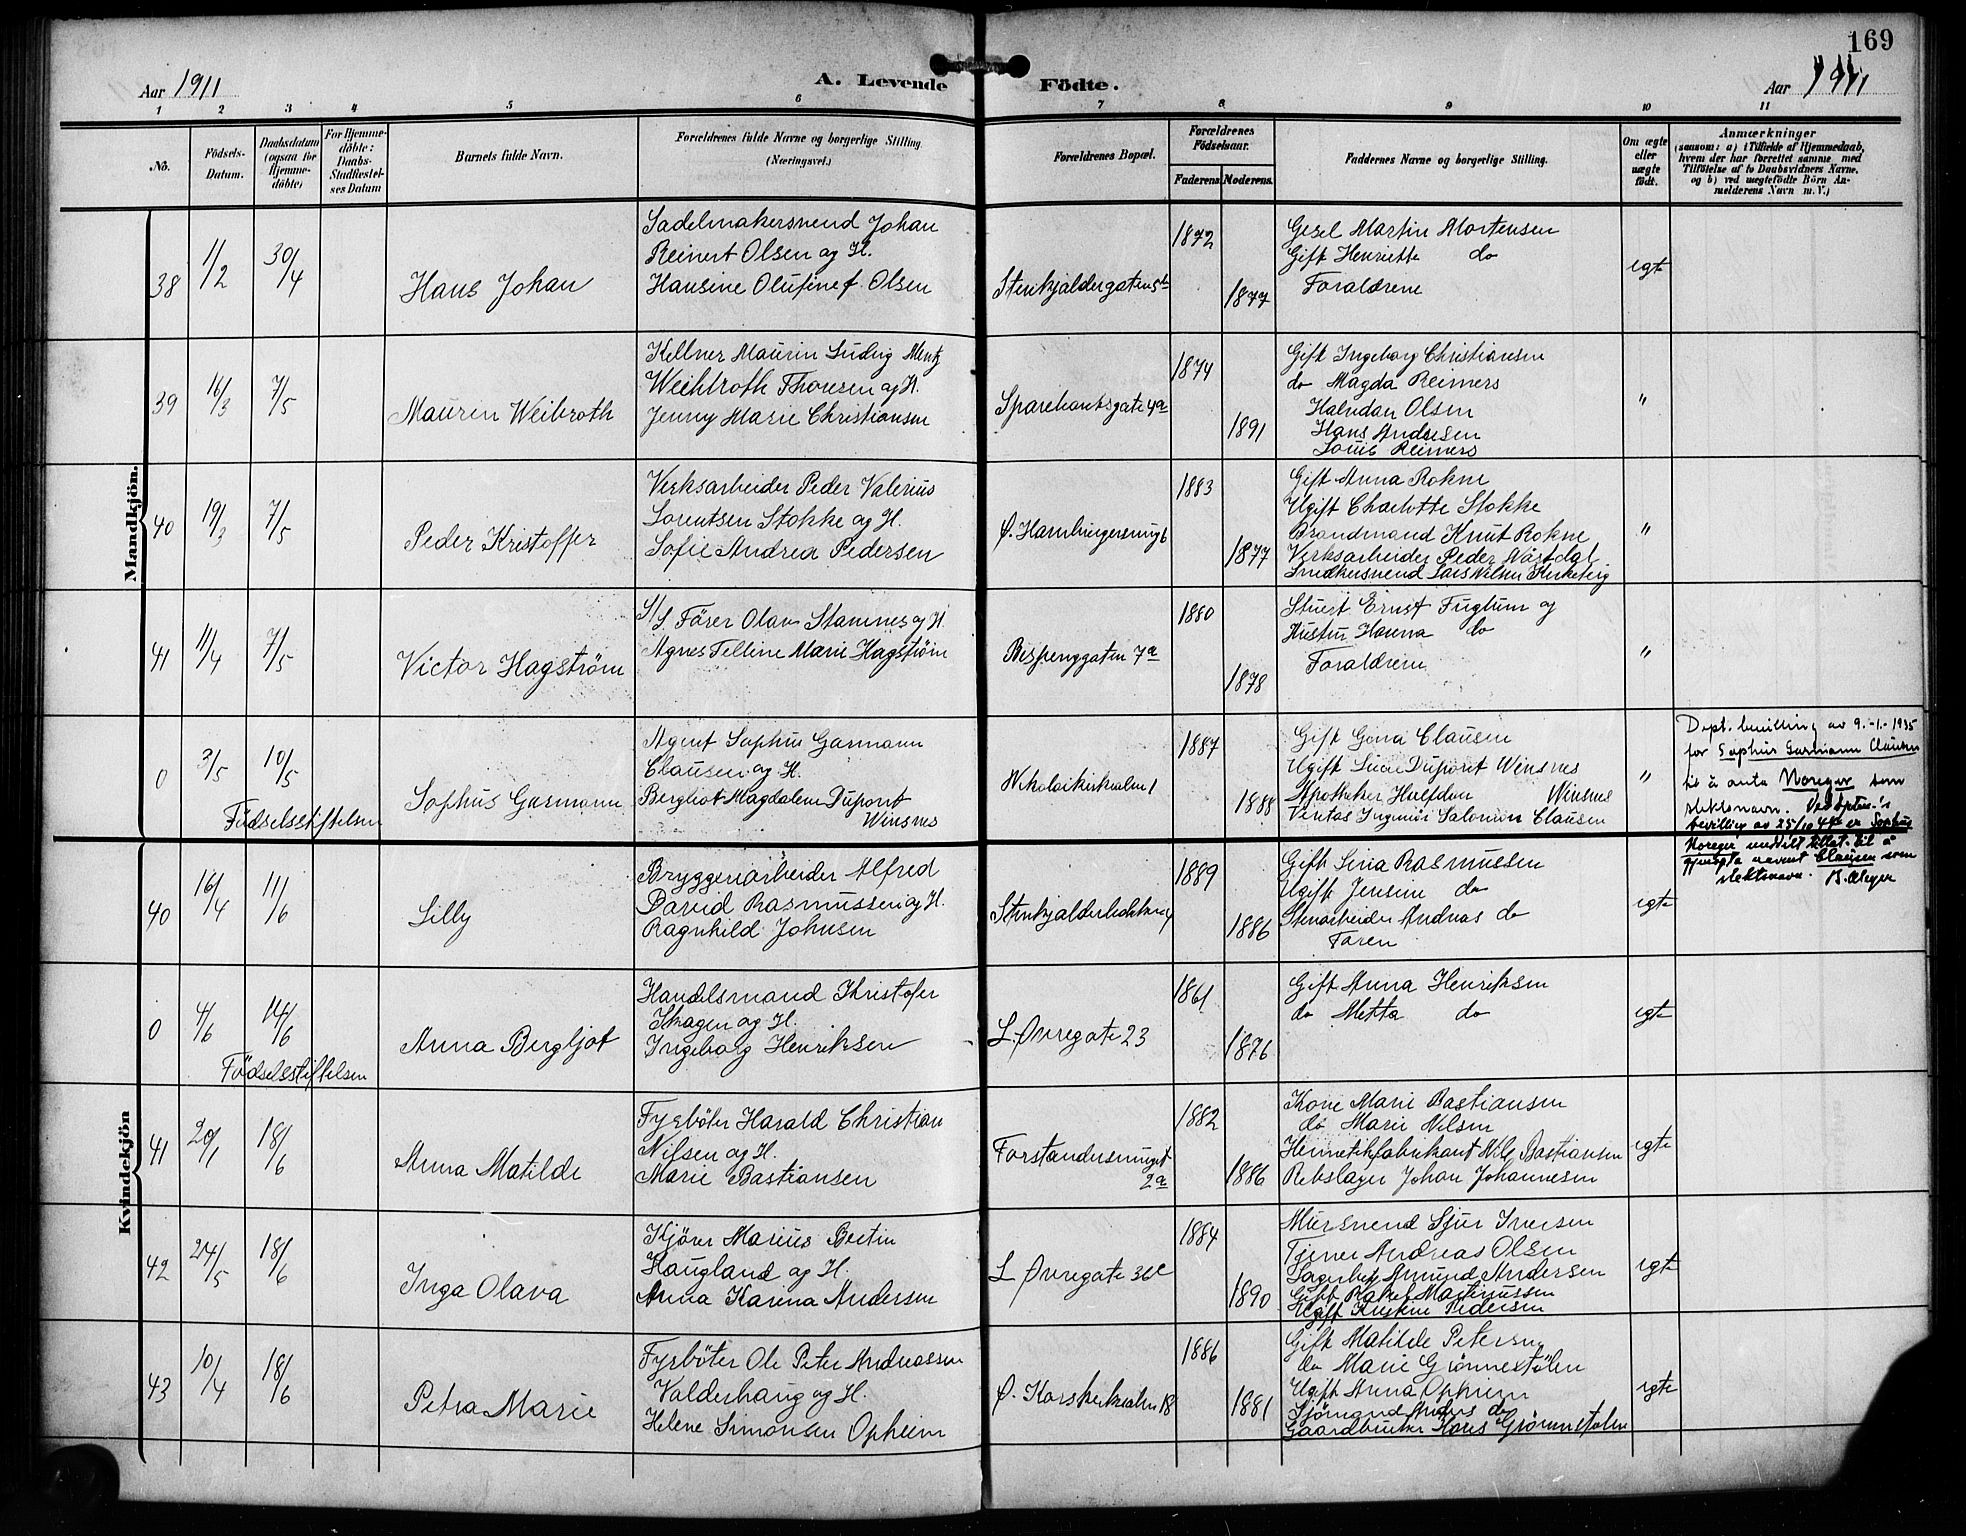 169
Aar 1911
A. Levende Födte.
Aar 1911
1 2 3 4 5 6 7 8 9 10 11
No.
Födsels-Datum.
Daabsdatum (ogsaa for Hjemme-döbte)
For Hjemme-döbte: Daabs-Stadfæstel-ses Datum
Barnets fulde Navn.
Forældrenes fulde Navne og borgerlige Stilling. (Næringsvei.)
Forældrenes Bopæl.
Forældrenes Födselsaar.
Faderens Moderens.
Faddernes Navne og borgerlige Stilling.
Om ægte eller uægte födt.
Anmærkninger
(saasom: a) i Tilfælde af Hjemmedaab,
hvem der har forrettet samme med
Tilföielse af to Daabsvidners Navne.
og b) ved uægtefödte Börn An-
melderens Navn m. V.)
Mandkjön.
38 1/2 30/4
Hans Johan
Sadelmakersvend Johan
Reinert Olsen og H.
Hansine Olufine f. Olsen
Stenkjeldergaten 5b
1872
1877
Gesel Martin Mortensen
Gift Henriette do
Forældrene
egte
39 16/3 7/5
Maurin Weibroth
Kellner Maurin Ludvig Mentz
Weihbroth Thoresen og H.
Jenny Marie Christiansen
Sparebanksgate 4a
1874
1891
Gift Ingeborg Christiansen
do Magda Reimers
Halvdan Olsen
Hans Andresen
Louis Reimers
"
40 19/3 7/5
Peder Kristoffer
Verksarbeider Peder Valerius
Lorentsen Stokke og H.
Sofie Andrea Pedersen
Ø. Hamburgersmug 6
1883
1877
Gift Anna Rokne
Ugift Charlotte Stokke
Brandmand Knut Rokne
Verksarbeider Peder
Snedkersvend Lars Nilsen
"
41 11/4 7/5
Victor Hagström
S/S. Förer Olav Stamnes og H.
Agnes Felline Marie Hagström
Bispenggaten 7a
1880
1878
Stuert Ernst Fuglum og
Hustru Hanna do
Forældrene
"
0 3/5 10/5
Födselsstiftelsen
Sophus Garmann
Agent Sophus Garmann
Clausen og H.
Bergliot Magdalene Dupont
Winsnes
Nikolaikirkealm 1
1887
1888
Gift Gina Clausen
Ugift Lucie Dupont Winsnes
Apotheker Halfdan Winsnes
Veritas Ingeniör Salomon Clausen
"
Dept. bevilling av 9.-1.-1935
for Sophus Garmann Clausen
til å anta Noreger som
slektsnavn. Ved Dptm.'s
bevilling av 25/10 44 er Sophus
Noreger meddelt tillat. til å
gjenopta navnet Clausen som
slektsnavn. B. Meyer
Kvindekjön
40 16/4 11/6
Lilly
Bryggeriarbeider Alfred
David Rasmussen og H.
Ragnhild Johnsen
1889
1886
Gift Lina Rasmussen
Ugift Jensine do
Stenarbeider Andreas do
Faren
egte
0 4/6 14/6
Födselsstiftelsen
Anna Bergljot
Handelsmand Kristofer
Skagen og H.
Ingeborg Henriksen
L. Øvregate 23
1861
1876
Gift Anna Henriksen
do Metta do
egte
41 20/1 18/6
Anna Matilde
Fyrböter Harald Christian
Nilsen og H.
Marie Bastiansen
Forstandersmuget
2a
1882
1886
Kone Marie Bastiansen
do Marie Nilsen
Hermetikfabrikant Nils Bastiansen
Rebslager Johan Johannesen
egte
42 24/5 18/6
Inga Olava
Kjörer Marius Bertin
Haugland og H.
Anna Karina Andersen
L Øvregate 36c
1884
1890
Mursvend Sjur Iversen
Tjener Andreas Olsen
Lagerbet Amund Andersen
Gift Rakel Martinussen
Ugift Kristine Pedersen
egte
43 10/4 18/6
Petra Marie
Fyrböter Ole Peter Andreassen
Valderhaug og H.
Helene Simonsen Opheim
Ø. Korskirkealm 18
1886
1881
Gift Matilde Petersen
do Marie Grönnestölen
Ugift Anna Opheim
Sjömand Anders do
Gaardbruker Hans Grönnestölen
egte